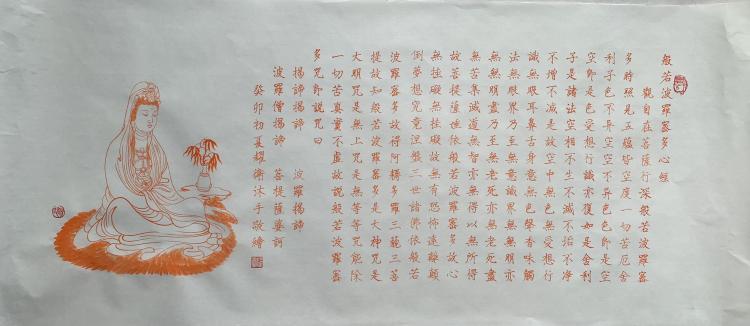 般若波羅蜜多心經
觀自在菩薩行深般若波羅蜜
多時照見五蘊皆空度一切苦厄舍
利子色不異空空不異色色即是空
空即是色受想行識亦復如是舍利
子是諸法空相不生不滅不垢不淨
不增不減是故空中無色無受想行
識無眼耳鼻舌身意無色聲香味觸
法無眼界乃至無意識界無無明亦
無無明盡乃至無老死亦無老死盡
無苦集滅道無智亦無得以無所得
故菩提薩埵依般若波羅蜜多故心
無挂礙無挂礙故無有恐怖遠離顛
倒夢想究竟涅槃三世諸佛依般若
波羅蜜多故得阿耨多羅三藐三菩
提故知般若波羅蜜多是大神咒是
大明咒是無上咒是無等等咒能除
一切苦真實不虛故說般若波羅蜜
多咒即說咒曰
揭諦揭諦 波羅揭諦
波羅僧揭諦 菩提薩婆訶
癸卯初夏耀衛沐手敬繪